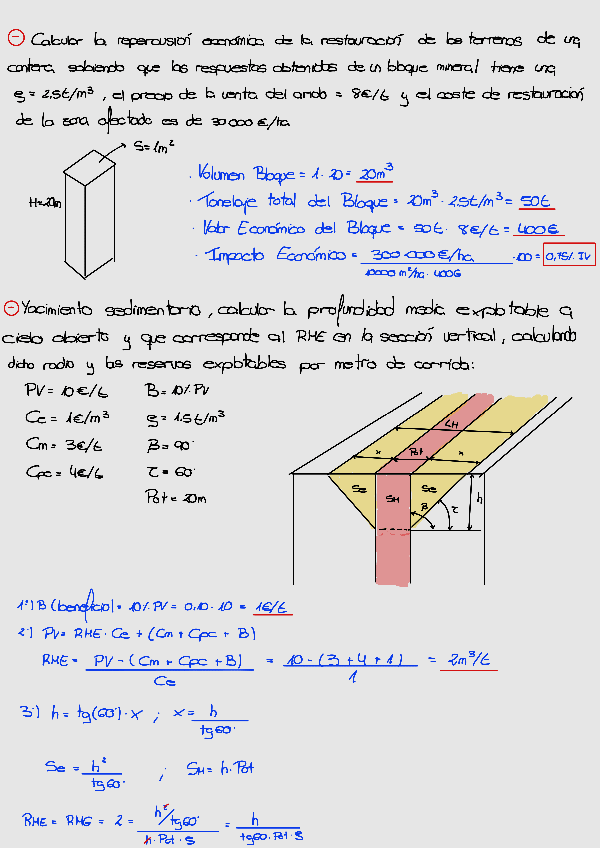 Calcular la repercusión económica de la restauración de los terrenos de una
cantera sabiendo que las respuestas obtenidas de un bloque mineral tiene una
ρ = 2.5t/m³, el precio de la venta del arido = 8€/t y el coste de restauración
de la zona afectada es de 30 000 €/ha
S=1m²
H=20m
· Volumen Bloque = 1 · 20 = 20m³
· Tonelaje total del Bloque = 20m³ · 2.5t/m³ = 50t
· Valor Económico del Bloque = 50t · 8€/t = 400€
· Impacto Económico = 300 000 €/ha / 10000 m²/ha · 400€ · 100 = 0,75% IV
Yacimiento sedimentario, calcular la profundidad media explotable a
cielo abierto y que corresponde al RME en la sección vertical, calculando
dicho radio y las reservas explotables por metro de corrida:
PV = 10€/t B = 10% PV
Ce = 1€/m³ ρ = 1.5t/m³
Cm = 3€/t B = 90°
Cpc = 4€/t τ = 60°
Pot = 20m
LH
x Pot x
Se SM Se
B τ h
1º) B (beneficio) = 10% PV = 0,10 · 10 = 1€/t
2º) PV = RME · Ce + (Cm + Cpc + B)
RME = PV - (Cm + Cpc + B) / Ce = 10 - (3 + 4 + 1) / 1 = 2m³/t
3º) h = tg(60°) · x ; x = h / tg60°
Se = h² / tg60° ; SM = h · Pot
RME = RMG = 2 = h²/tg60° / h · Pot · ρ = h / tg60 · Pot · ρ